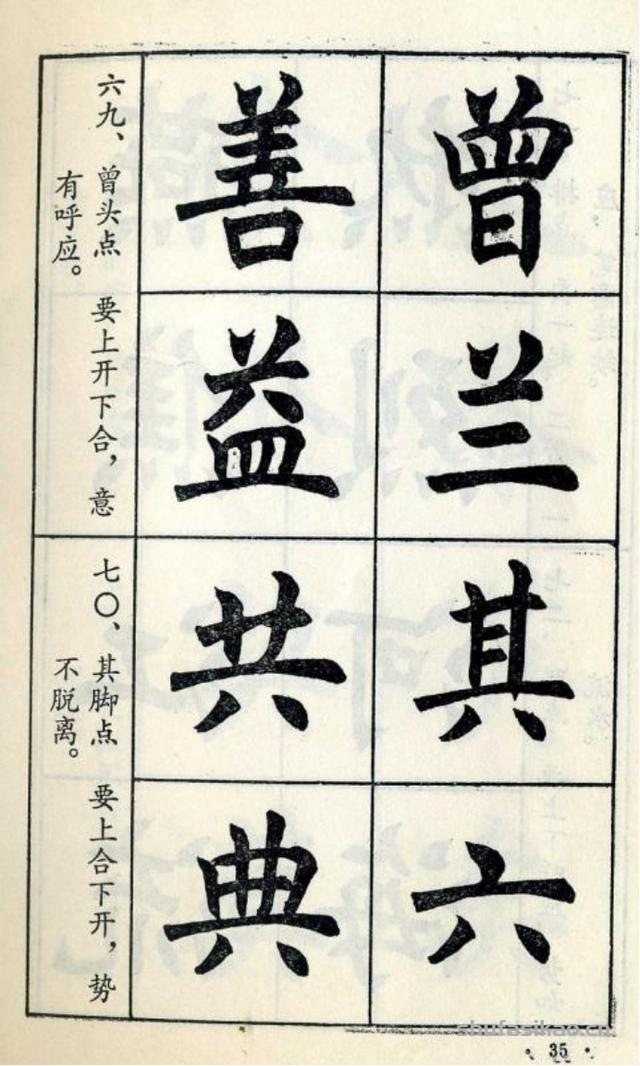 曾兰其六
善益共典
六九、曾头点 要上开下合，意
有呼应。
七〇、其脚点 要上合下开，势
不脱离。
shufasikao.cn
· 35 ·